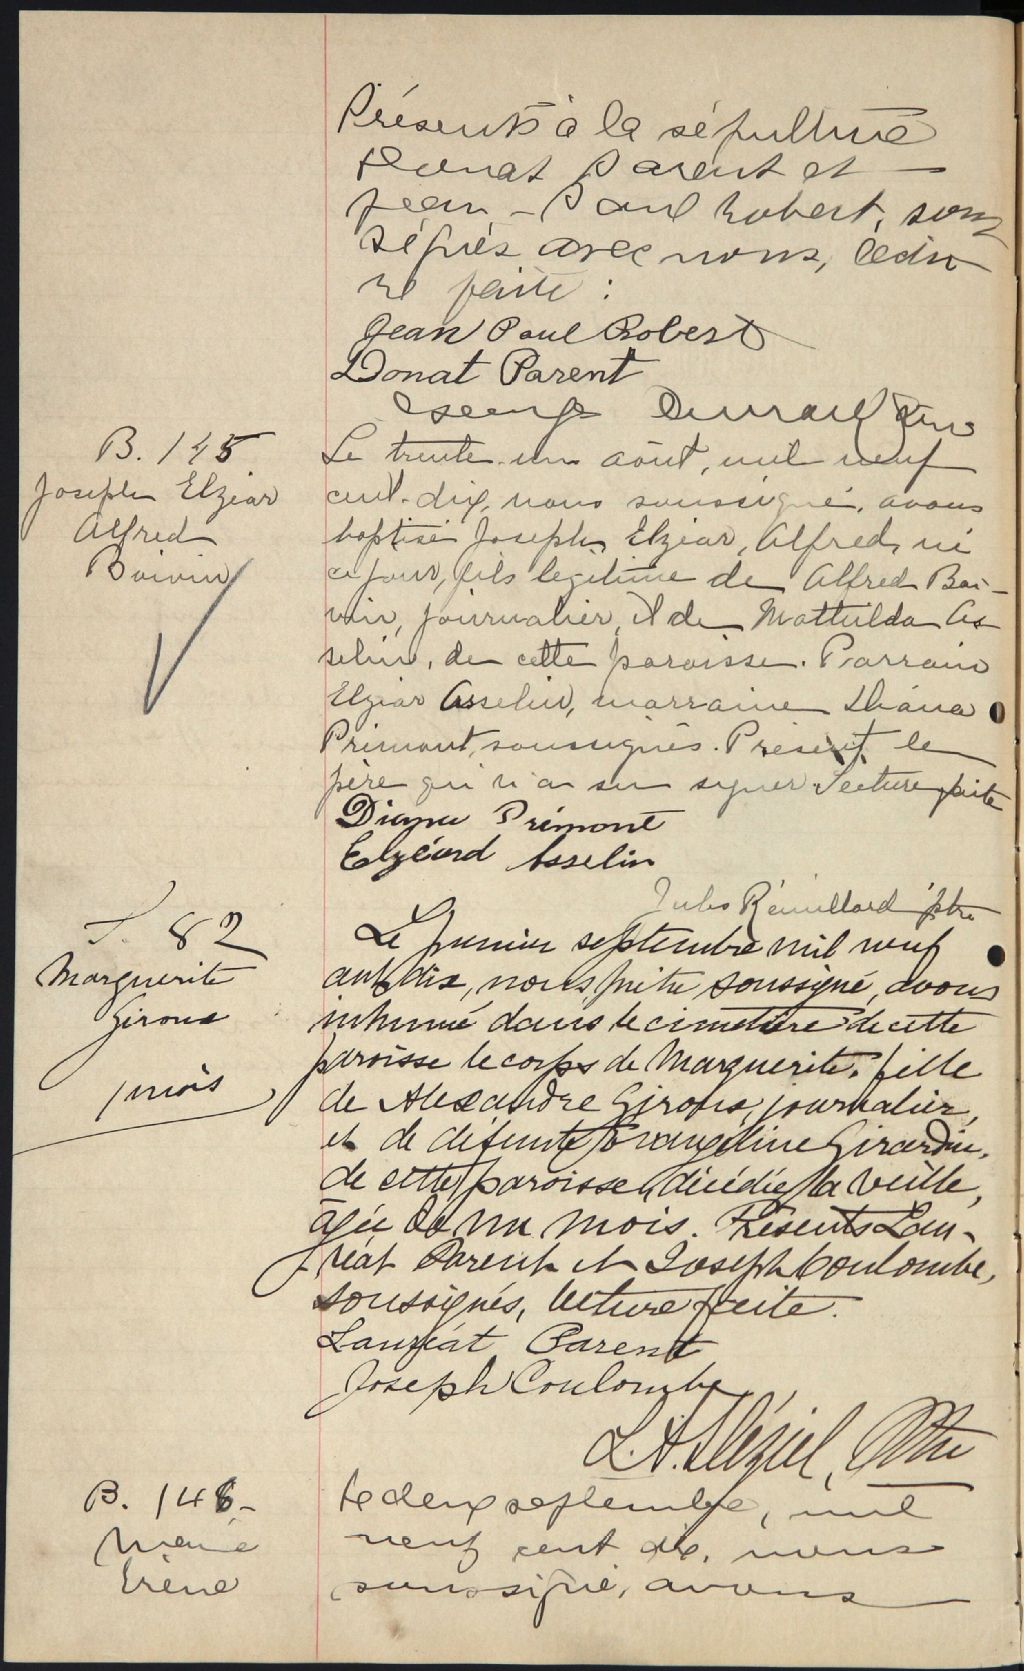 Présents à la sépulture
Donat Parent et
Jean-Paul Robert, sous
signés avec nous, lectu
re faite :
Jean Paul Robert
Donat Parent
B. 145
Joseph Elzéar
Alfred
Boivin
Le trente-un août, mil neuf
cent-dix, nous soussigné, avons
baptisé Joseph, Elzéar, Alfred, né
ce jour, fils légitime de Alfred Boi-
vin, journalier, et de Mathilda As
selin, de cette paroisse. Parrain
Elzéar Asselin, marraine Diana
Primont, soussignés. Présent le
père qui n'a su signer. Lecture faite
Diana Primont
Elzéard Asselin
Jules Rémillard ptre
S. 82
Marguerite
Giroux
1 mois
Le premier septembre mil neuf
cent dix, nous, prêtre soussigné, avons
inhumé dans le cimetière de cette
paroisse le corps de Marguerite, fille
de Alexandre Giroux, journalier,
et de défunte Evangéline Girardin,
de cette paroisse, décédée la veille,
âgée de un mois. Présents Lau-
réat Parent et Joseph Coulombe,
soussignés, lecture faite.
Lauréat Parent
Joseph Coulombe
Ptre
B. 146
Marie
Irène
Le deux septembre, mil
neuf cent dix, nous
soussigné, avons